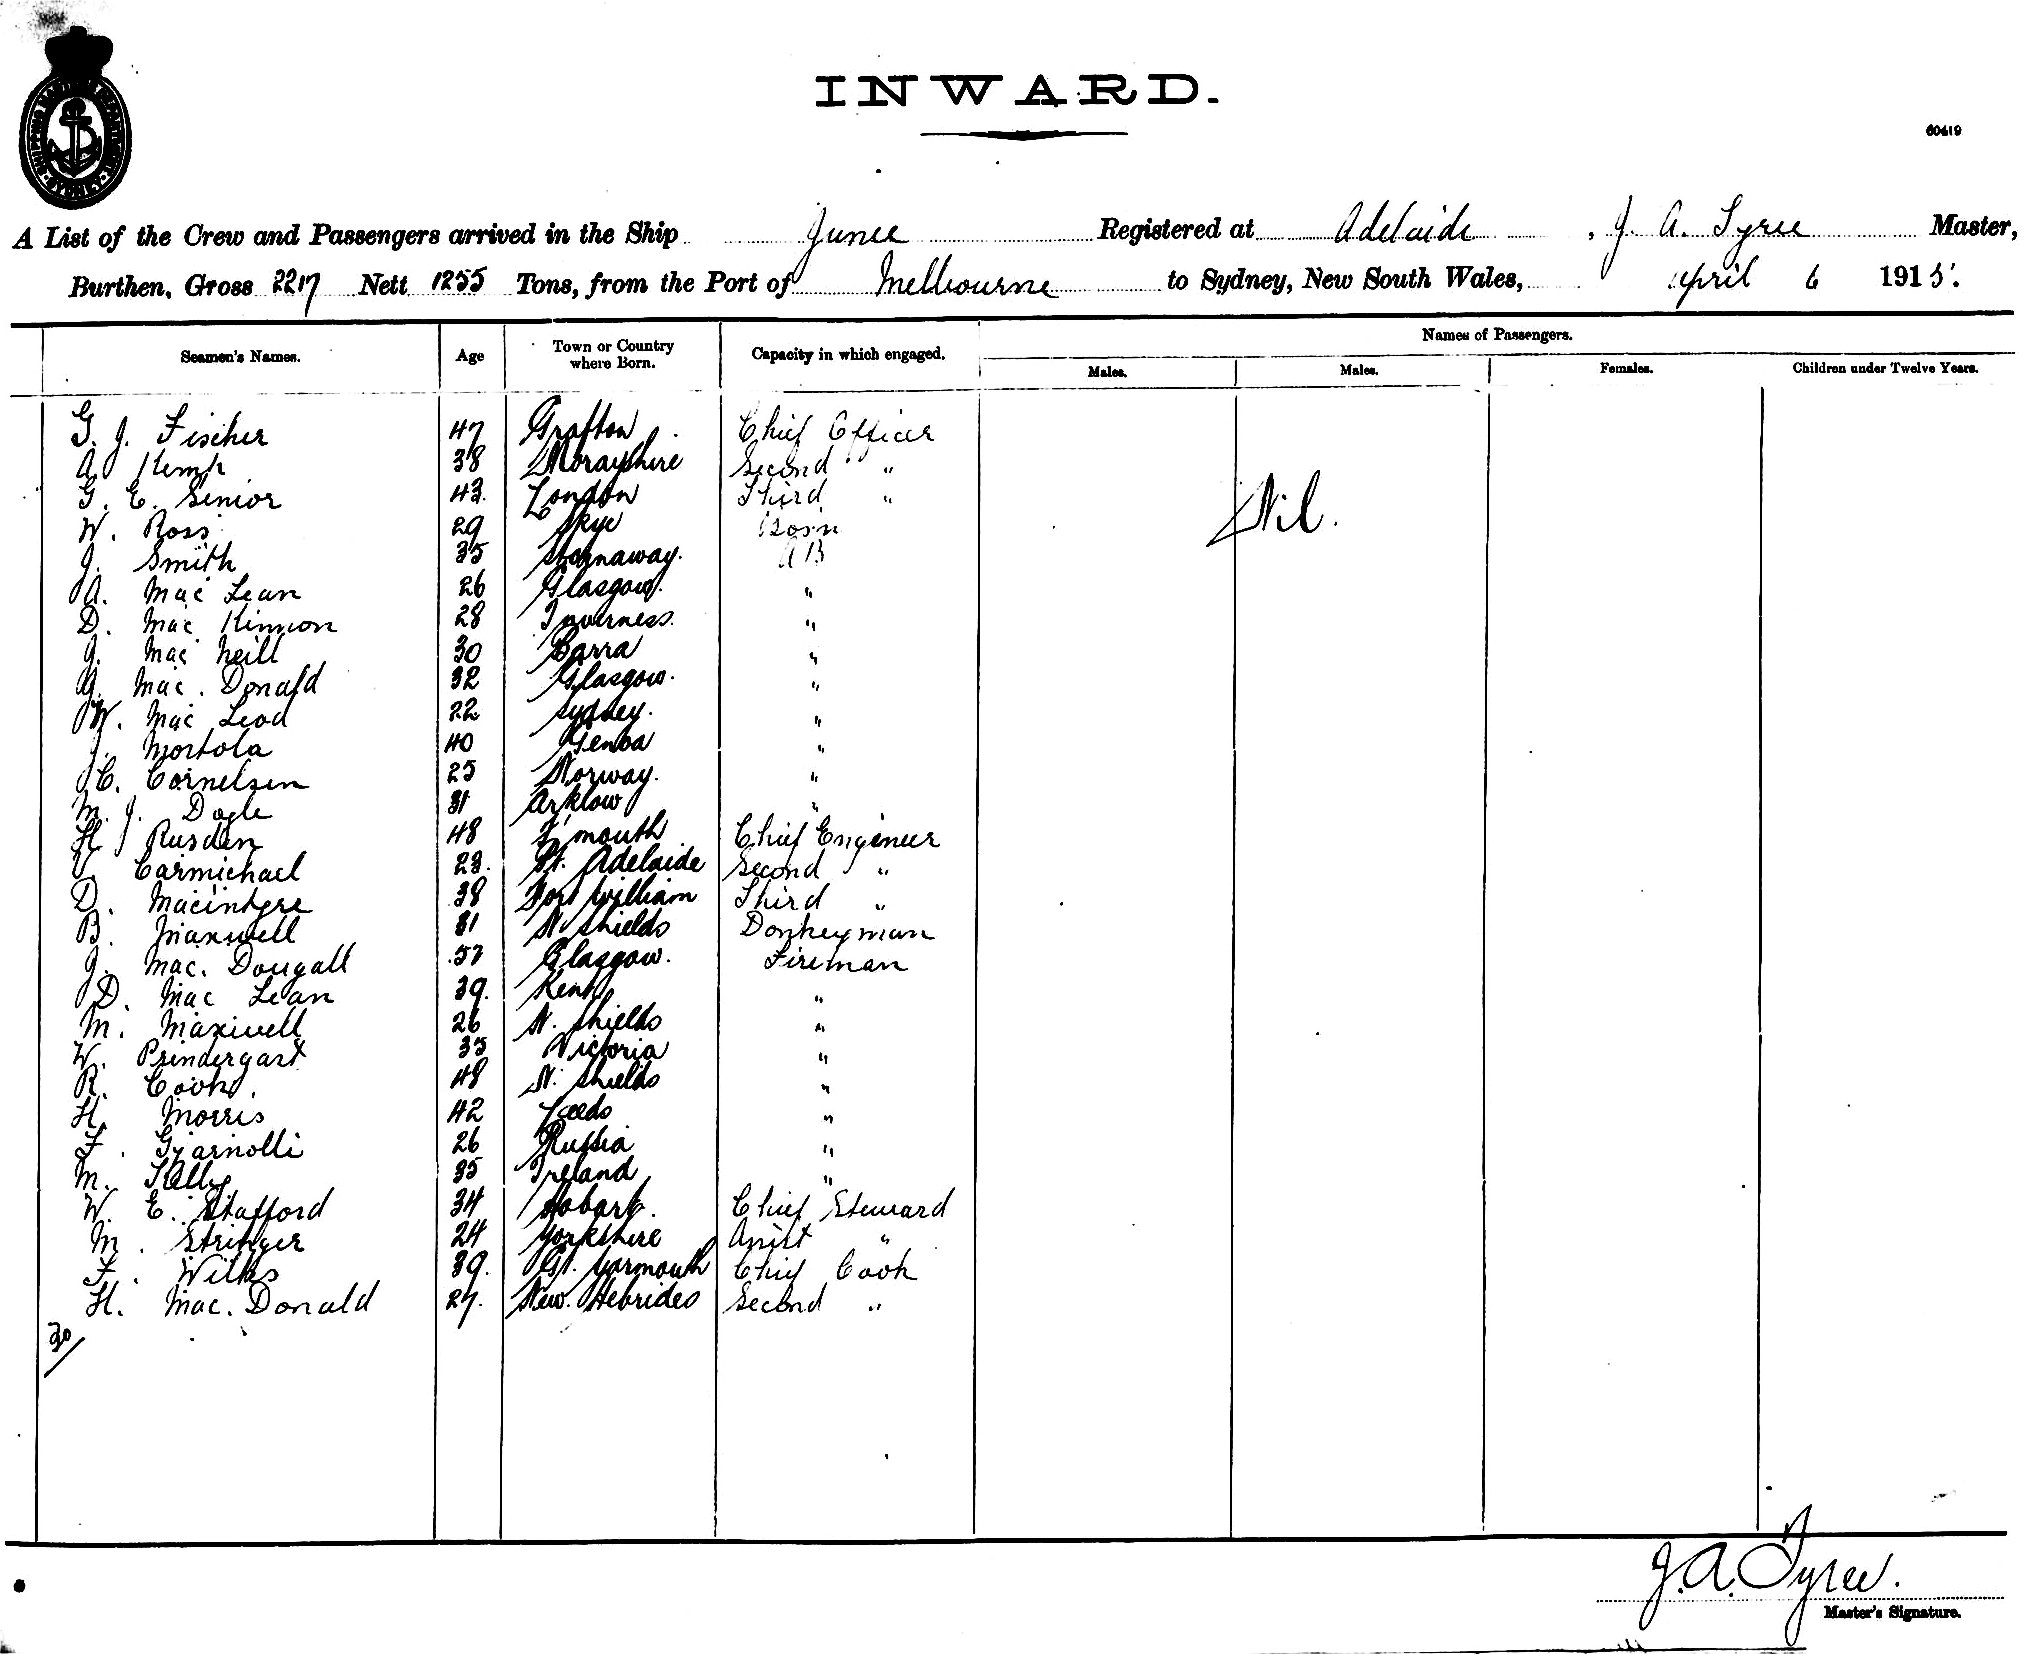 SHIPPING MASTER'S DEPARTMENT SYDNEY
INWARD.
60419
A List of the Crew and Passengers arrived in the Ship Junee Registered at Adelaide, J. A. Tyree Master,
Burthen, Gross 2217 Nett 1255 Tons, from the Port of Melbourne to Sydney, New South Wales, April 6 1915.
Names of Passengers.
Seamen's Names. Age Town or Country where Born. Capacity in which engaged. Males. Males. Females. Children under Twelve Years.
G. J. Fischer 47 Grafton Chief Officer
A. Kemp 38 Morayshire Second "
G. E. Senior 43 London Third " Nil.
W. Ross 29 Skye Bosn
J. Smith 35 Stornaway. AB
A. Mac Lean 26 Glasgow. "
D. Mac Kinnon 28 Inverness. "
J. Mac Neill 30 Barra "
A. Mac. Donald 32 Glasgow. "
W. Mac Leod 22 Sydney. "
J. Mortola 40 Genoa "
C. Cornelsen 25 Norway. "
M. J. Dogle 31 Arklow "
H. Rusden 48 Chief Engineer
Carmichael 23. Pt. Adelaide Second "
D. Macintyre 38 Fort William Third "
B. Maxwell 31 N. Shields Donkeyman
J. Mac. Dougall Glasgow. Fireman
D. Mac Lean 39. Kent "
M. Maxwell 26 N. Shields "
W. Prendergast 35 Victoria "
R. Cook 48 N. Shields "
H. Morris 42 Leeds "
F. Gjarnolli 26 Russia "
M. 35 Ireland "
W. E. Stafford 34 Hobart. Chief Steward
M. Stringer 24 Yorkshire Assist "
F. Wilks 39. Gt. Yarmouth Chief Cook
H. Mac. Donald 27. New. Hebrides Second "
30/
J. A. Tyree.
Master's Signature.